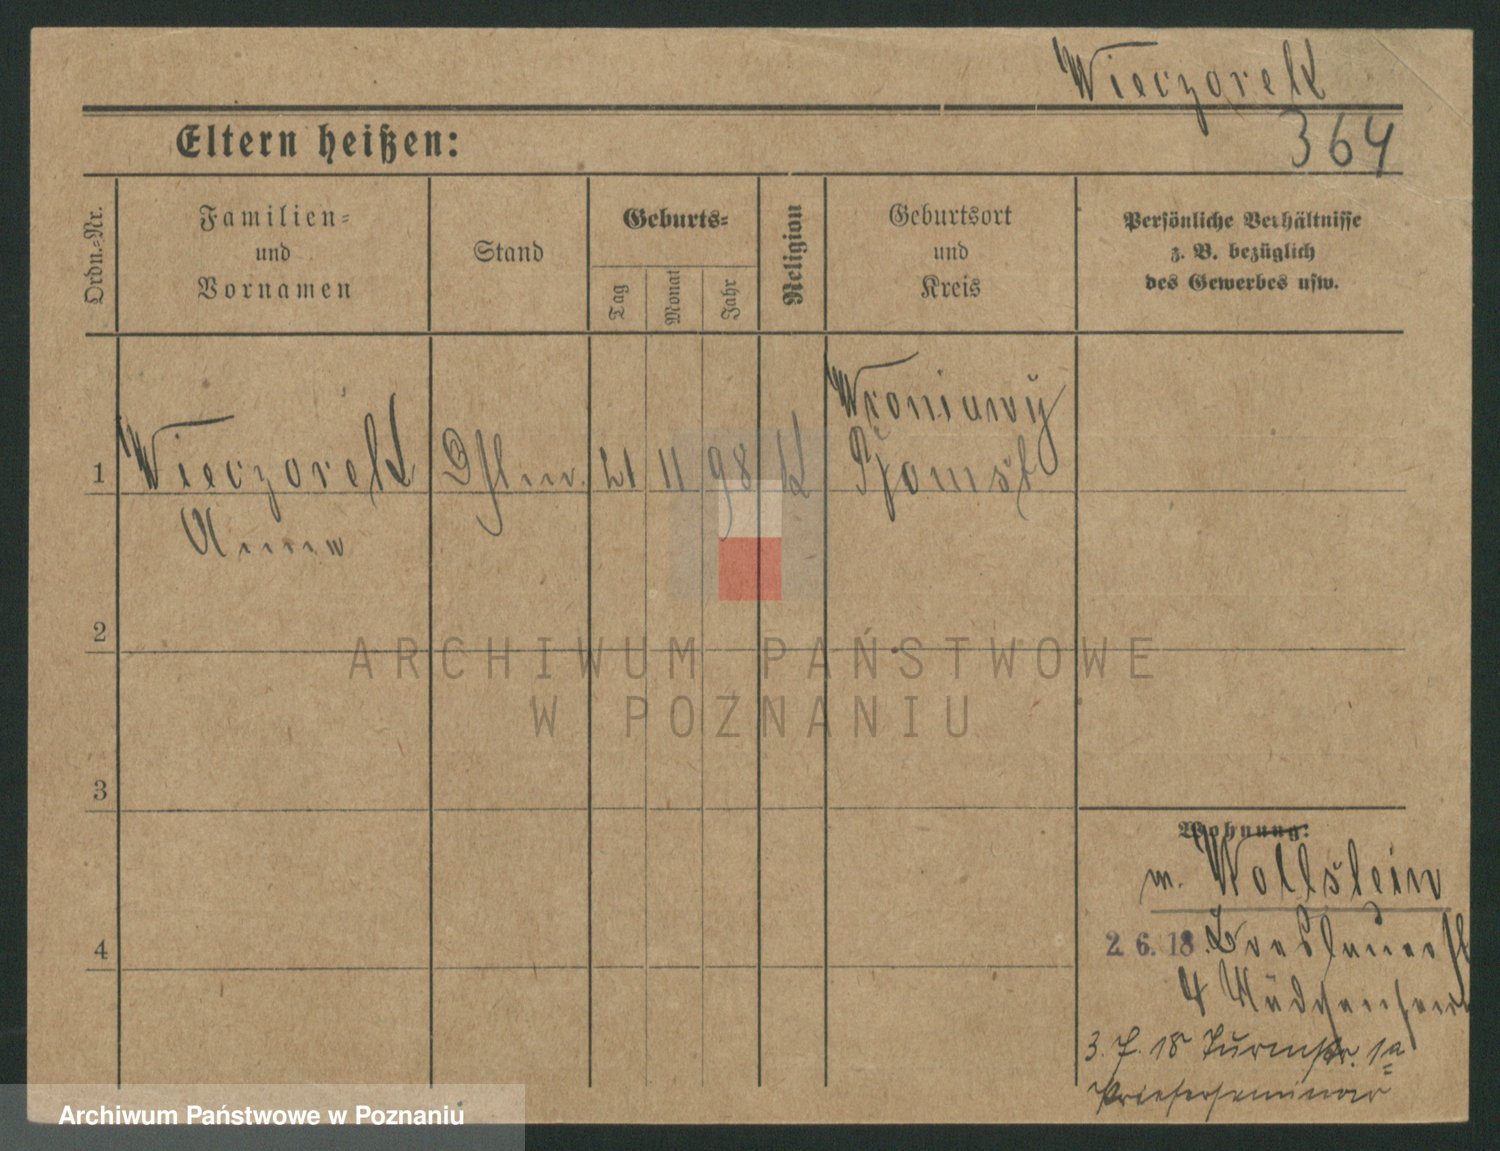 Wieczorek
364
Eltern heißen:
Ordn.-Nr.
Familien-
und
Vornamen
Stand
Geburts-
Tag
Monat
Jahr
Religion
Geburtsort
und
Kreis
Persönliche Verhältnisse
z. B. bezüglich
des Gewerbes usw.
1
Wieczorek
21
11
98
K
Wroniawy
Bomst
Anna
2
3
4
ARCHIWUM PAŃSTWOWE
W POZNANIU
Wohnung:
n. Wollstein
2. 6. 18. Breslauerst
4 Mädchenheim
3. 7. 18 Turmstr. 1a
Priesterseminar
Archiwum Państwowe w Poznaniu